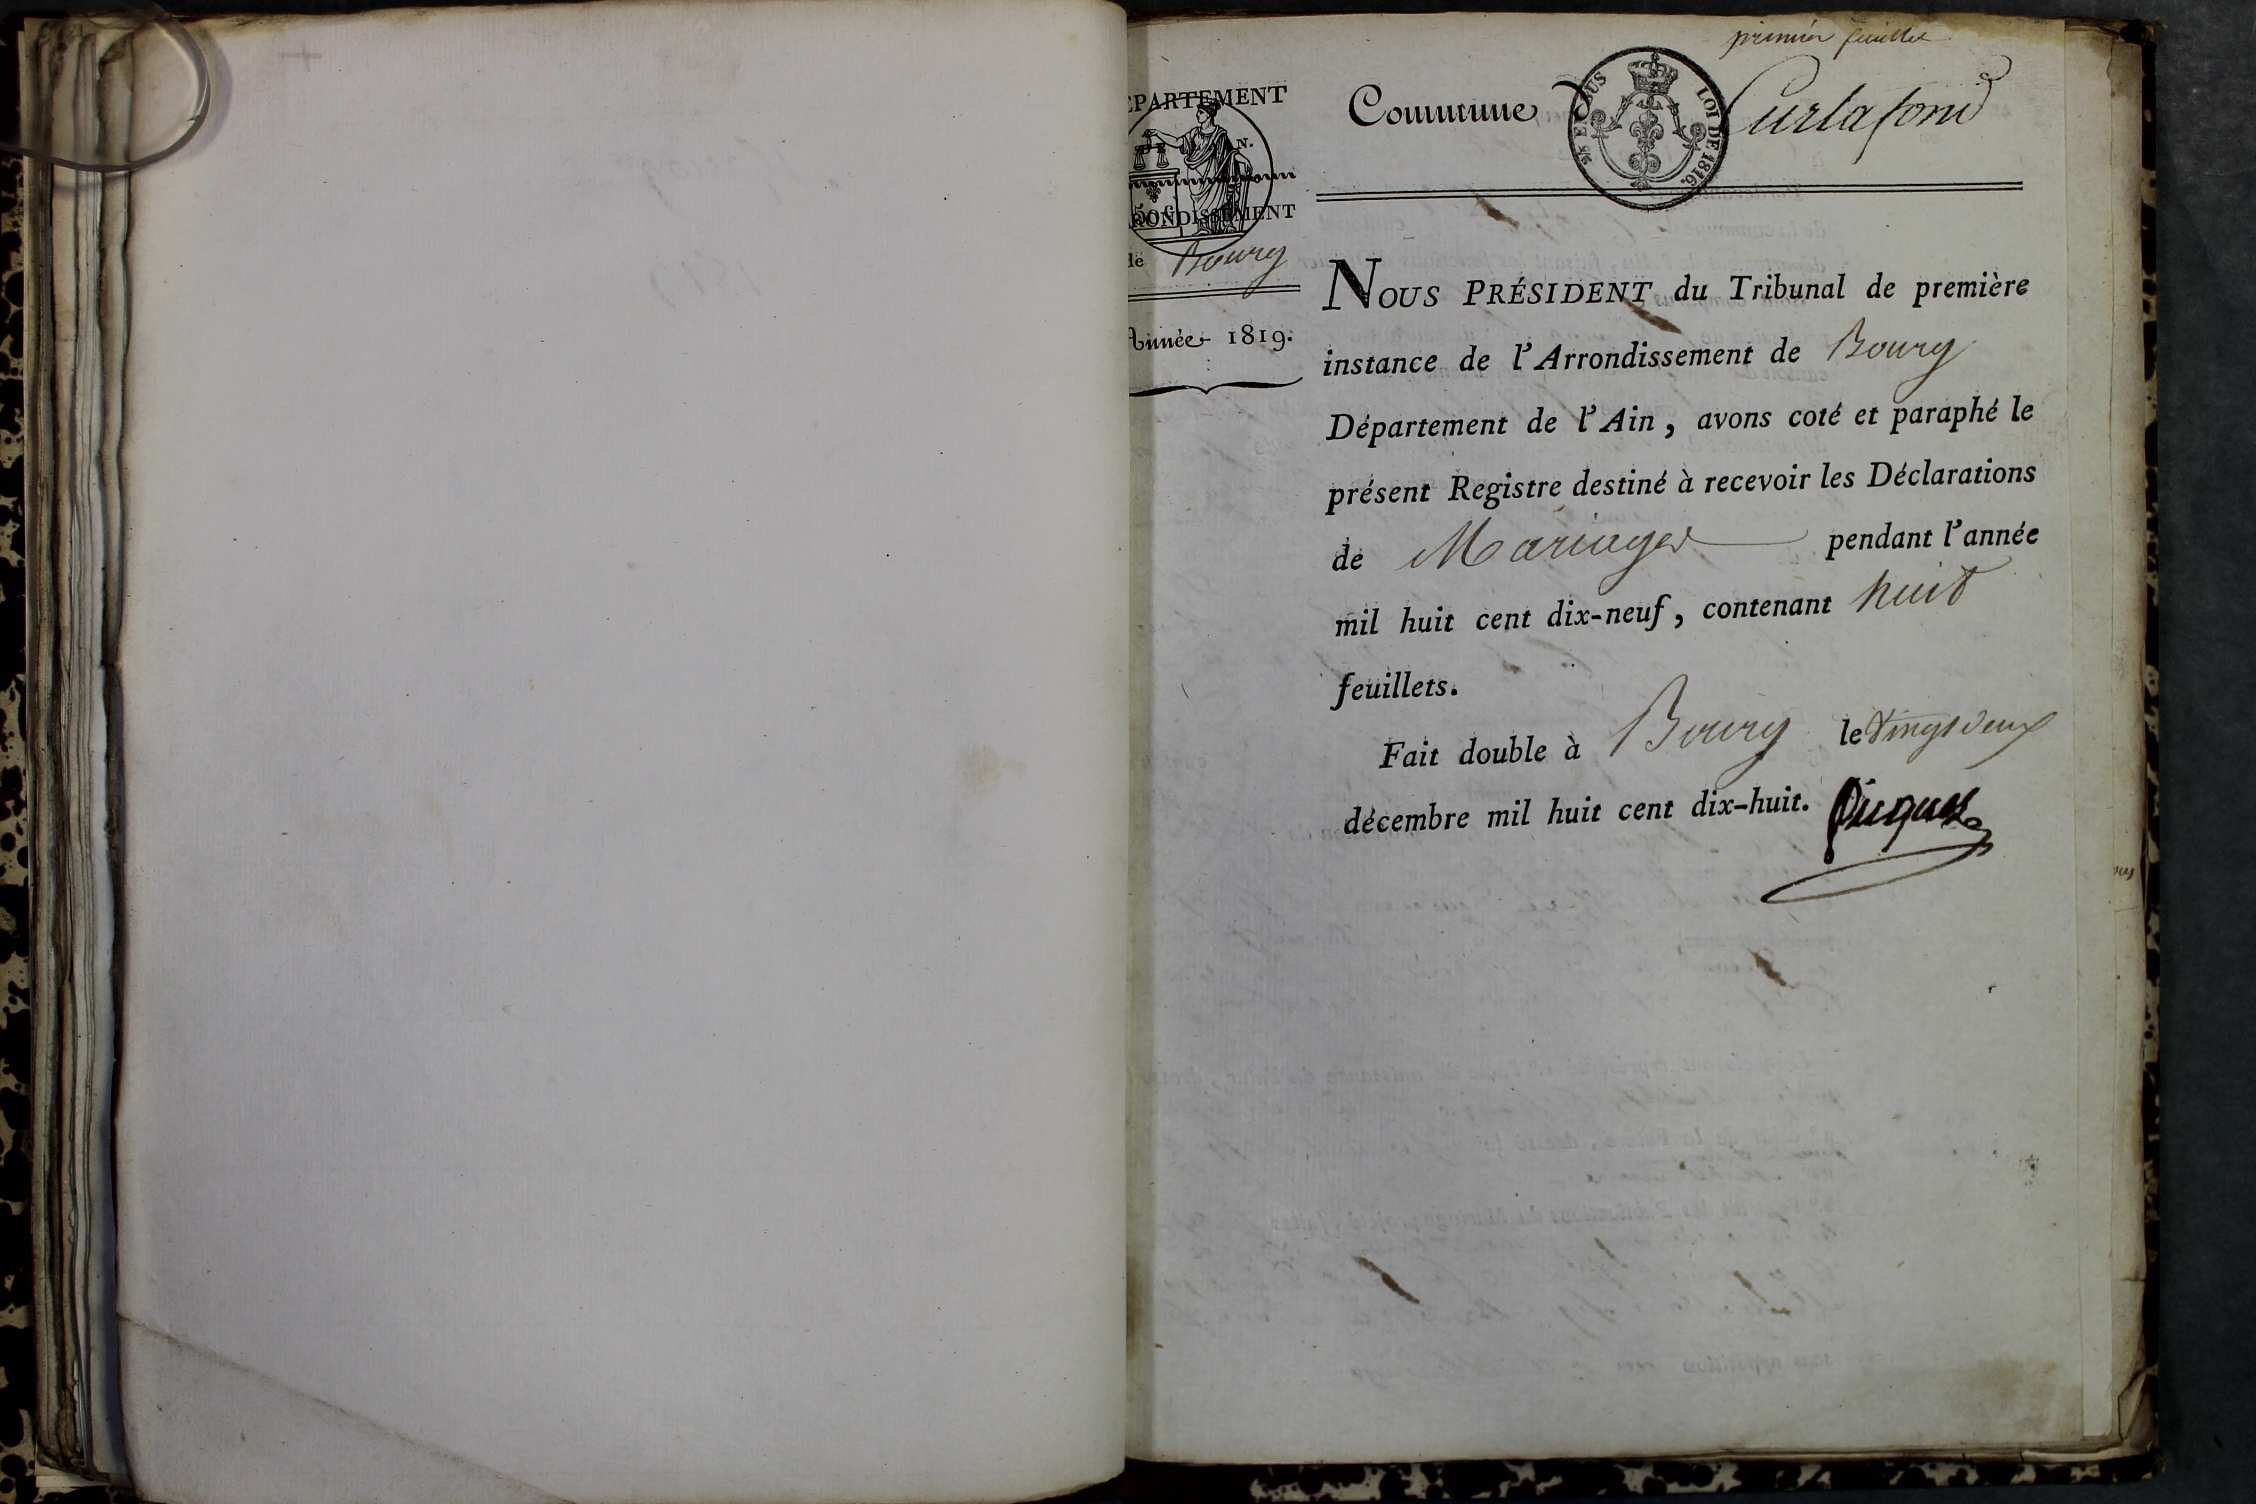 premier feuillet
DÉPARTEMENT
Commune de Curtafond
EN SUS
LOI DE 1816.
50 c
ARRONDISSEMENT
de Bourg
Année 1819.
NOUS PRÉSIDENT du Tribunal de première
instance de l'Arrondissement de Bourg
Département de l'Ain, avons coté et paraphé le
présent Registre destiné à recevoir les Déclarations
de Mariages pendant l'année
mil huit cent dix-neuf, contenant huit
feuillets.
Fait double à Bourg le vingt deux
décembre mil huit cent dix-huit.